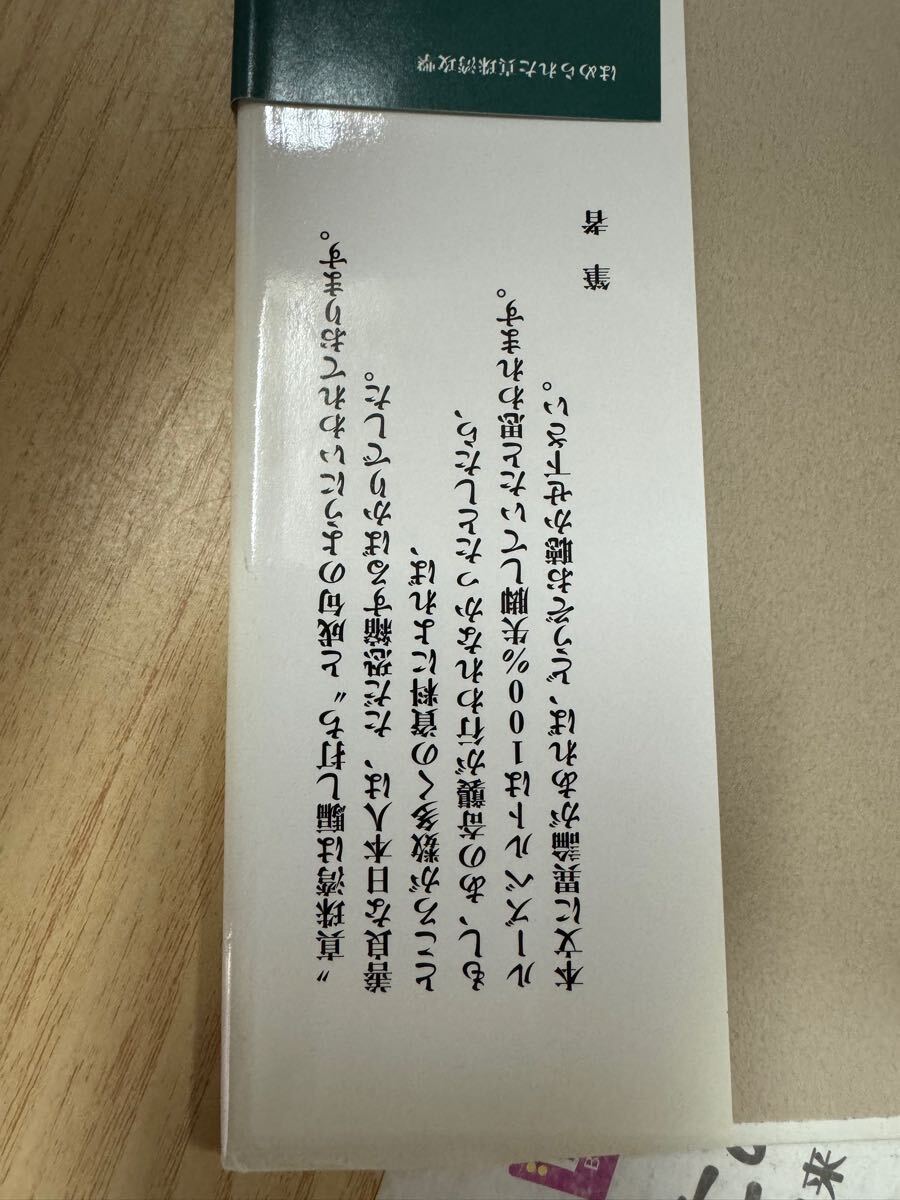 はめられた真珠湾攻撃
〝真珠湾は騙し打ち〟と成句のようにいわれております。
善良な日本人は、ただ恐縮するばかりでした。
ところが数多くの資料によれば、
もし、あの奇襲が行われなかったとしたら、
ルーズベルトは100%失脚していたと思われます。
本文に異論があれば、どうぞお聴かせ下さい。
筆者
来